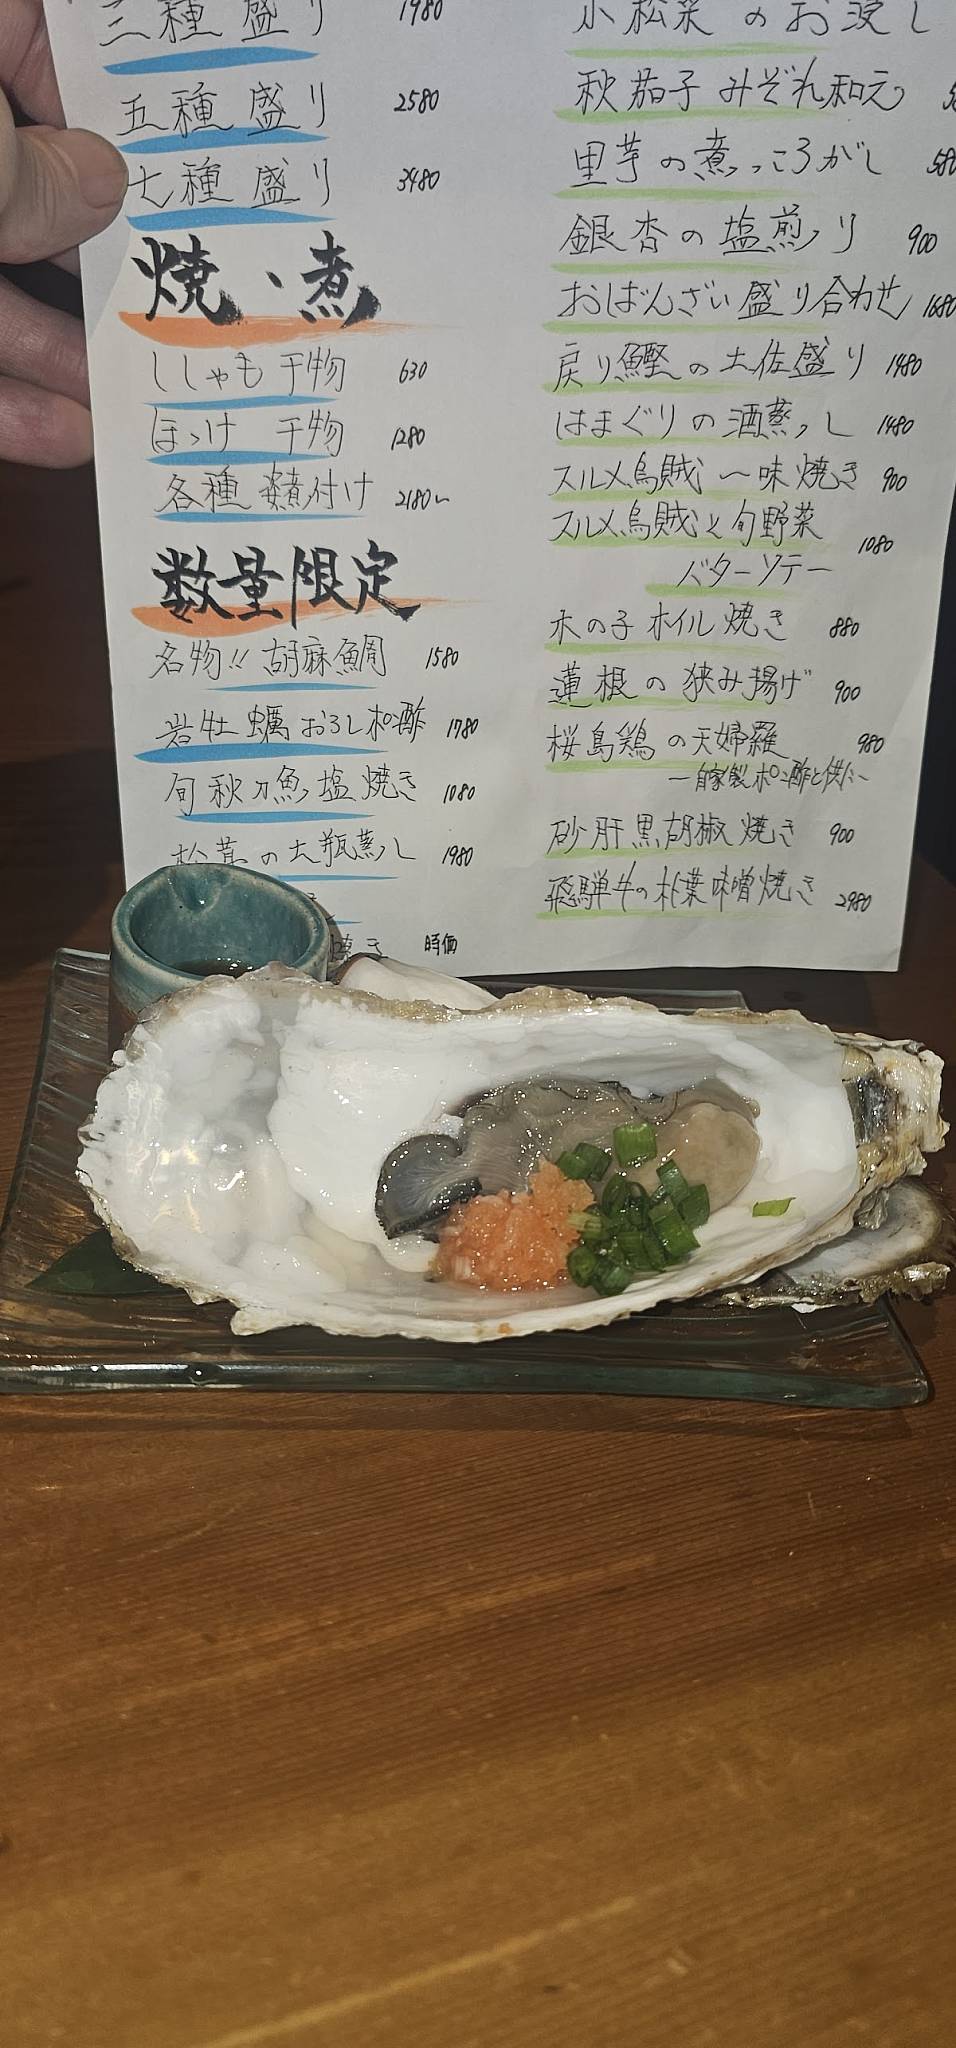 三種盛り 1980
五種盛り 2580
七種盛り 3480
焼・煮
ししゃも干物 630
ほっけ 干物 1280
各種煮付け 2180~
数量限定
名物!! 胡麻鯛 1580
岩牡蠣おろしポン酢 1780
旬秋刀魚塩焼き 1080
松茸の土瓶蒸し 1980
焼き 時価
小松菜のお浸し
秋茄子みぞれ和え
里芋の煮っころがし 580
銀杏の塩煎り 900
おばんざい盛り合わせ 1680
戻り鰹の土佐盛り 1480
はまぐりの酒蒸し 1480
スルメ烏賊一味焼き 900
スルメ烏賊と旬野菜
バターソテー 1080
木の子ホイル焼き 880
蓮根の狭み揚げ 900
桜島鶏の天婦羅 980
―自家製ポン酢と供に―
砂肝黒胡椒焼き 900
飛騨牛の朴葉味噌焼き 2980